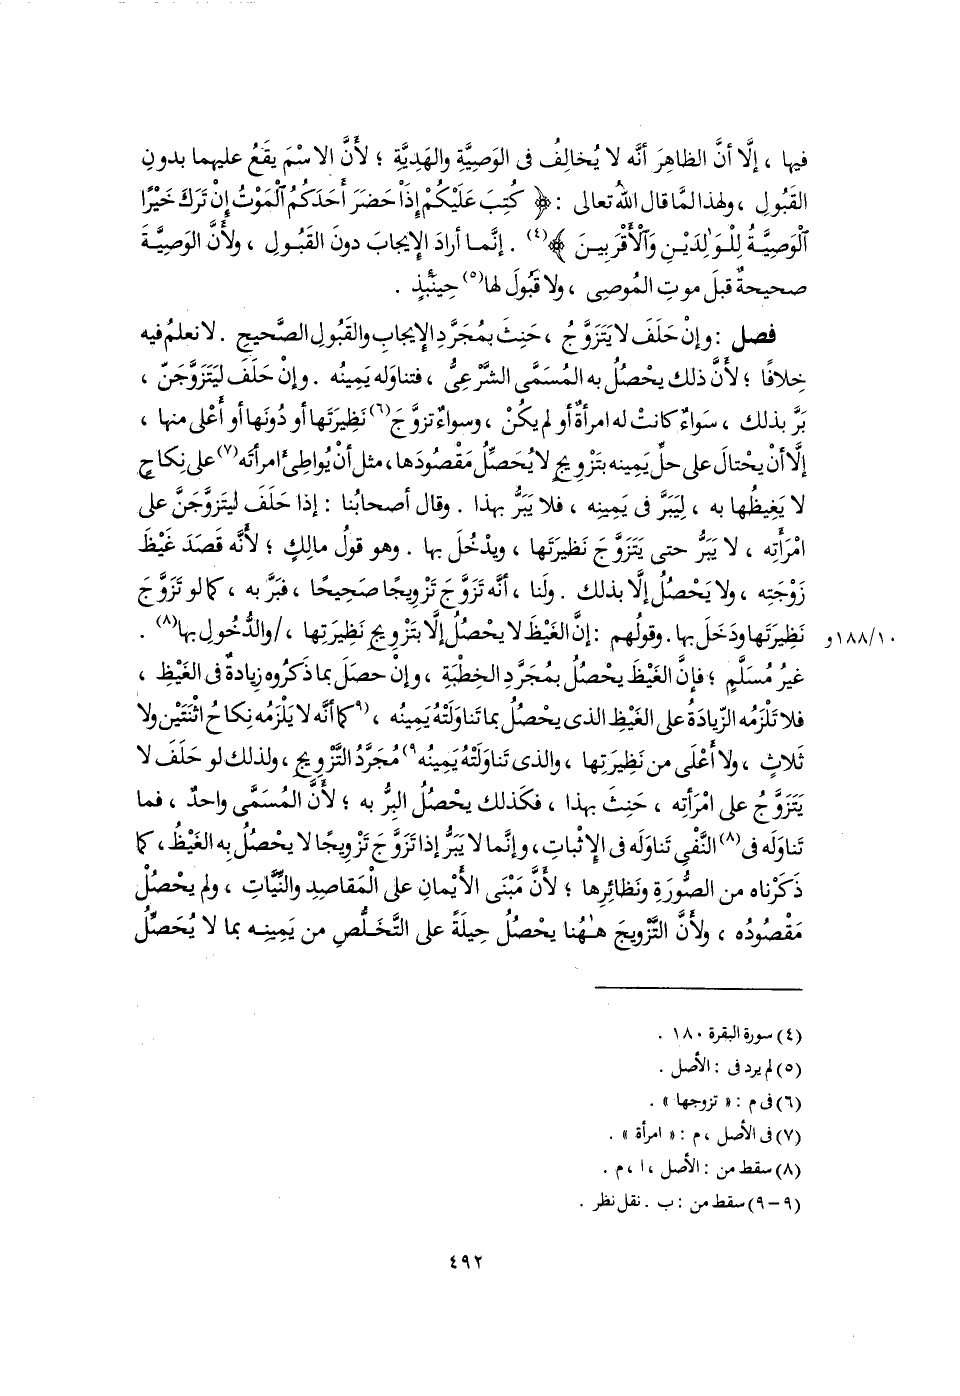 فيها ، إلَّا أنَّ الظاهِرَ أنَّه لا يُخالِفُ فى الوَصِيَّةِ والهَدِيَّةِ ؛ لأَنَّ الاسْمَ يقَعُ عليهما بدونِ
القَبُولِ ، ولهذا لمَّا قال اللهُ تعالى : ﴿ كُتِبَ عَلَيْكُمْ إِذَا حَضَرَ أَحَدَكُمُ ٱلْمَوْتُ إِنْ تَرَكَ خَيْرًا
ٱلْوَصِيَّةُ لِلْوَٰلِدَيْنِ وَٱلْأَقْرَبِينَ ﴾(٤) . إنَّما أرادَ الإِيجابَ دونَ القَبُولِ ، ولأَنَّ الوَصِيَّةَ
صحيحةٌ قبلَ موتِ المُوصِى ، ولا قَبُولَ لها(٥) حِينَئِذٍ .
فصل : وإنْ حَلَفَ لا يَتَزَوَّجُ ، حَنِثَ بمُجَرَّدِ الإِيجابِ والقَبُولِ الصَّحيحِ . لا نعلمُ فيه
خِلافًا ؛ لأَنَّ ذلك يحْصُلُ به المُسَمَّى الشَّرْعِىُّ ، فتناوَله يَمِينُه . وإنْ حَلَفَ ليَتَزَوَّجَنَّ ،
بَرَّ بذلك ، سَواءٌ كانتْ له امرأةٌ أو لم يكُنْ ، وسواءٌ تزوَّجَ(٦) نَظِيرَتَها أو دُونَها أو أَعْلى منها ،
إلَّا أنْ يحْتالَ على حلِّ يَمِينِه بتَزْوِيجٍ لا يُحَصِّلُ مَقْصُودَها ، مثل أنْ يُواطِئَ امرأتَه(٧) على نِكاحٍ
لا يَغِيظُها به ، لِيَبَرَّ فى يَمِينِه ، فلا يَبَرُّ بهذا . وقال أصحابُنا : إذا حَلَفَ ليَتَزَوَّجَنَّ على
امْرَأَتِه ، لا يَبَرُّ حتى يَتَزَوَّجَ نَظيرَتَها ، ويدْخُلَ بها . وهو قولُ مالِكٍ ؛ لأَنَّه قصَدَ غَيْظَ
زَوْجَتِه ، ولا يَحْصُلُ إلَّا بذلك . ولَنا ، أنَّه تَزَوَّجَ تَزْوِيجًا صَحِيحًا ، فبَرَّ به ، كما لو تَزَوَّجَ
نَظِيرَتَها ودَخَلَ بها . وقولُهم : إنَّ الغَيْظَ لا يحْصُلُ إلَّا بتَزْوِيجِ نَظِيرَتِها ، /والدُّخُولِ بها(٨) .
١٨٨/١٠و
غيرُ مُسَلَّمٍ ؛ فإنَّ الغَيْظَ يحْصُلُ بمُجَرَّدِ الخِطْبَةِ ، وإنْ حصَلَ بما ذكَرُوه زِيادةٌ فى الغَيْظِ ،
فلا تَلْزَمُه الزِّيادَةُ على الغَيْظِ الذى يحْصُلُ بما تَناوَلَتْهُ يَمِينُه ، (٩كما أنَّه لا يَلْزَمُه نِكاحُ اثْنَتَيْن ولا
ثَلاثٍ ، ولا أَعْلَى من نَظِيرَتِها ، والذى تَناوَلَتْهُ يَمِينُه٩) مُجَرَّدُ التَّزْوِيجِ ، ولذلك لو حَلَفَ لا
يَتَزَوَّجُ على امْرَأتِه ، حَنِثَ بهذا ، فكذلك يحْصُلُ البِرُّ به ؛ لأَنَّ المُسَمَّى واحدٌ ، فما
تَناوَلَه فى(٨) النَّفْىِ تَناوَلَه فى الإِثْباتِ ، وإنَّما لا يَبَرُّ إذا تَزَوَّجَ تَزْوِيجًا لا يحْصُلُ به الغَيْظُ ، كما
ذَكَرْناه من الصُّورَةِ ونَظائِرِها ؛ لأَنَّ مَبْنَى الأَيْمانِ على الْمَقاصِدِ والنِّيَّاتِ ، ولم يحْصُلْ
مَقْصُودُه ، ولأَنَّ التَّزْوِيجَ هٰهُنا يحْصُلُ حِيلَةً على التَّخَلُّصِ من يَمِينِه بما لا يُحَصِّلُ
(٤) سورة البقرة ١٨٠ .
(٥) لم يرد فى : الأصل .
(٦) فى م : « تزوجها » .
(٧) فى الأصل ، م : « امرأة » .
(٨) سقط من : الأصل ، ا ، م .
(٩ – ٩) سقط من : ب . نقل نظر .
٤٩٢